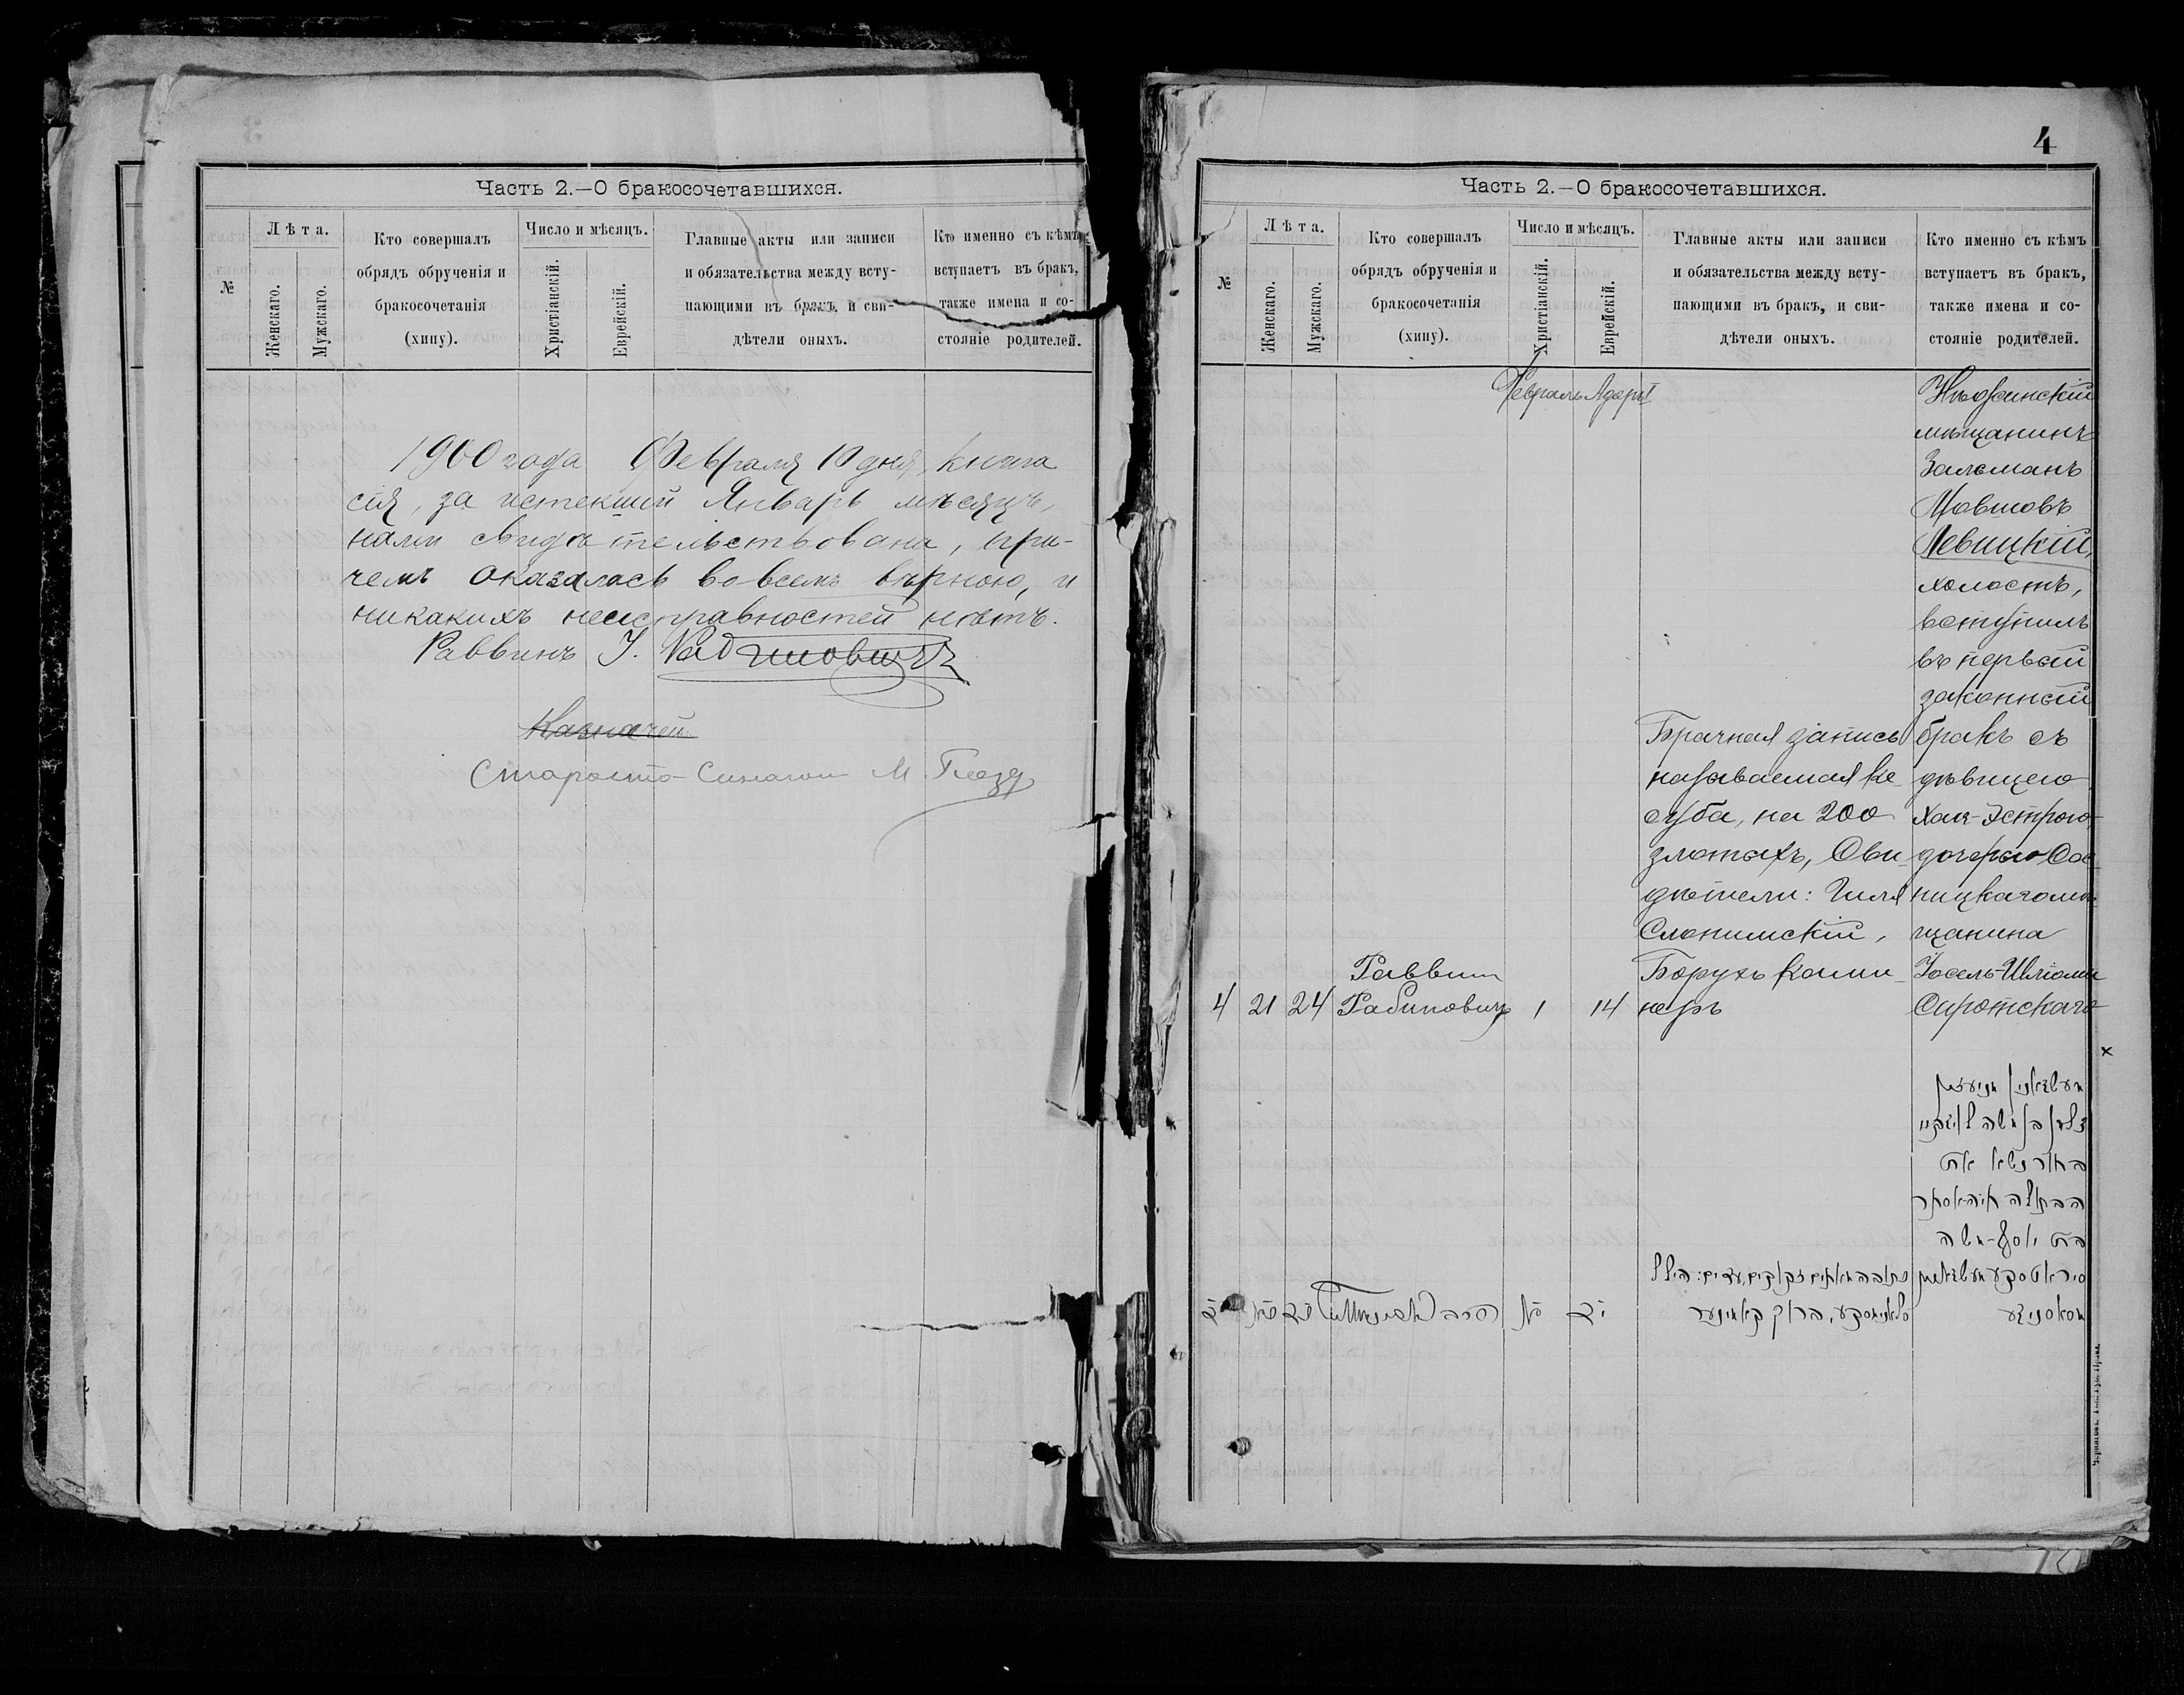 Часть 2.—О бракосочетавшихся.
№
Лѣта.
Женскаго.
Мужскаго.
Кто совершалъ
обрядъ обрученія и
бракосочетанія
(хипу).
Число и мѣсяцъ.
Христіанскій.
Еврейскій.
Главные акты или записи
и обязательства между всту-
пающими въ бракъ, и сви-
дѣтели оныхъ.
Кто именно съ кѣмъ
вступаетъ въ бракъ,
также имена и со-
стояніе родителей.
1900 года Февраля 10 дня, книга
сія, за истекшій Январь мѣсяцъ,
нами свидѣтельствована, при-
чемъ оказалась во всемъ вѣрною, и
никакихъ неисправностей нѣтъ.
Раввинъ І. Рабиновичъ
Казначей
Староста Синагоги М.
4
Часть 2.—О бракосочетавшихся.
№
Лѣта.
Женскаго.
Мужскаго.
Кто совершалъ
обрядъ обрученія и
бракосочетанія
(хипу).
Число и мѣсяцъ.
Христіанскій.
Еврейскій.
Главные акты или записи
и обязательства между всту-
пающими въ бракъ, и сви-
дѣтели оныхъ.
Кто именно съ кѣмъ
вступаетъ въ бракъ,
также имена и со-
стояніе родителей.
Февраль Адаръ I
4 21 24
Раввин
Рабинович
1 14
Брачная запись
называемая Ке-
суба, на 200
злотыхъ, Сви-
дѣтели: Гиля
Слонимскій,
Борухъ Комм-
неръ
Нѣжинскій
мѣщанинъ
Залманъ
Мовшовъ
Левицкій,
холостъ,
вступилъ
въ первый
законный
бракъ съ
дѣвицею
Хая-Эстрою,
дочерью Сос-
ницкаго мѣ-
щанина
Іосель-Шліомы
Сиротскаго
x
זלמן בן משה לעוויצקיי
הבחור נשא את
הבתולה חיה אסתר
בת יוסף-משה
כתובה מאתים זקוקים, עדים: הילל
סלאנימסקי, ברוך קאמינער
הרב ראבינאוויטש
א
יד
סיראטסקע מעשצאנין
מסאסניצע